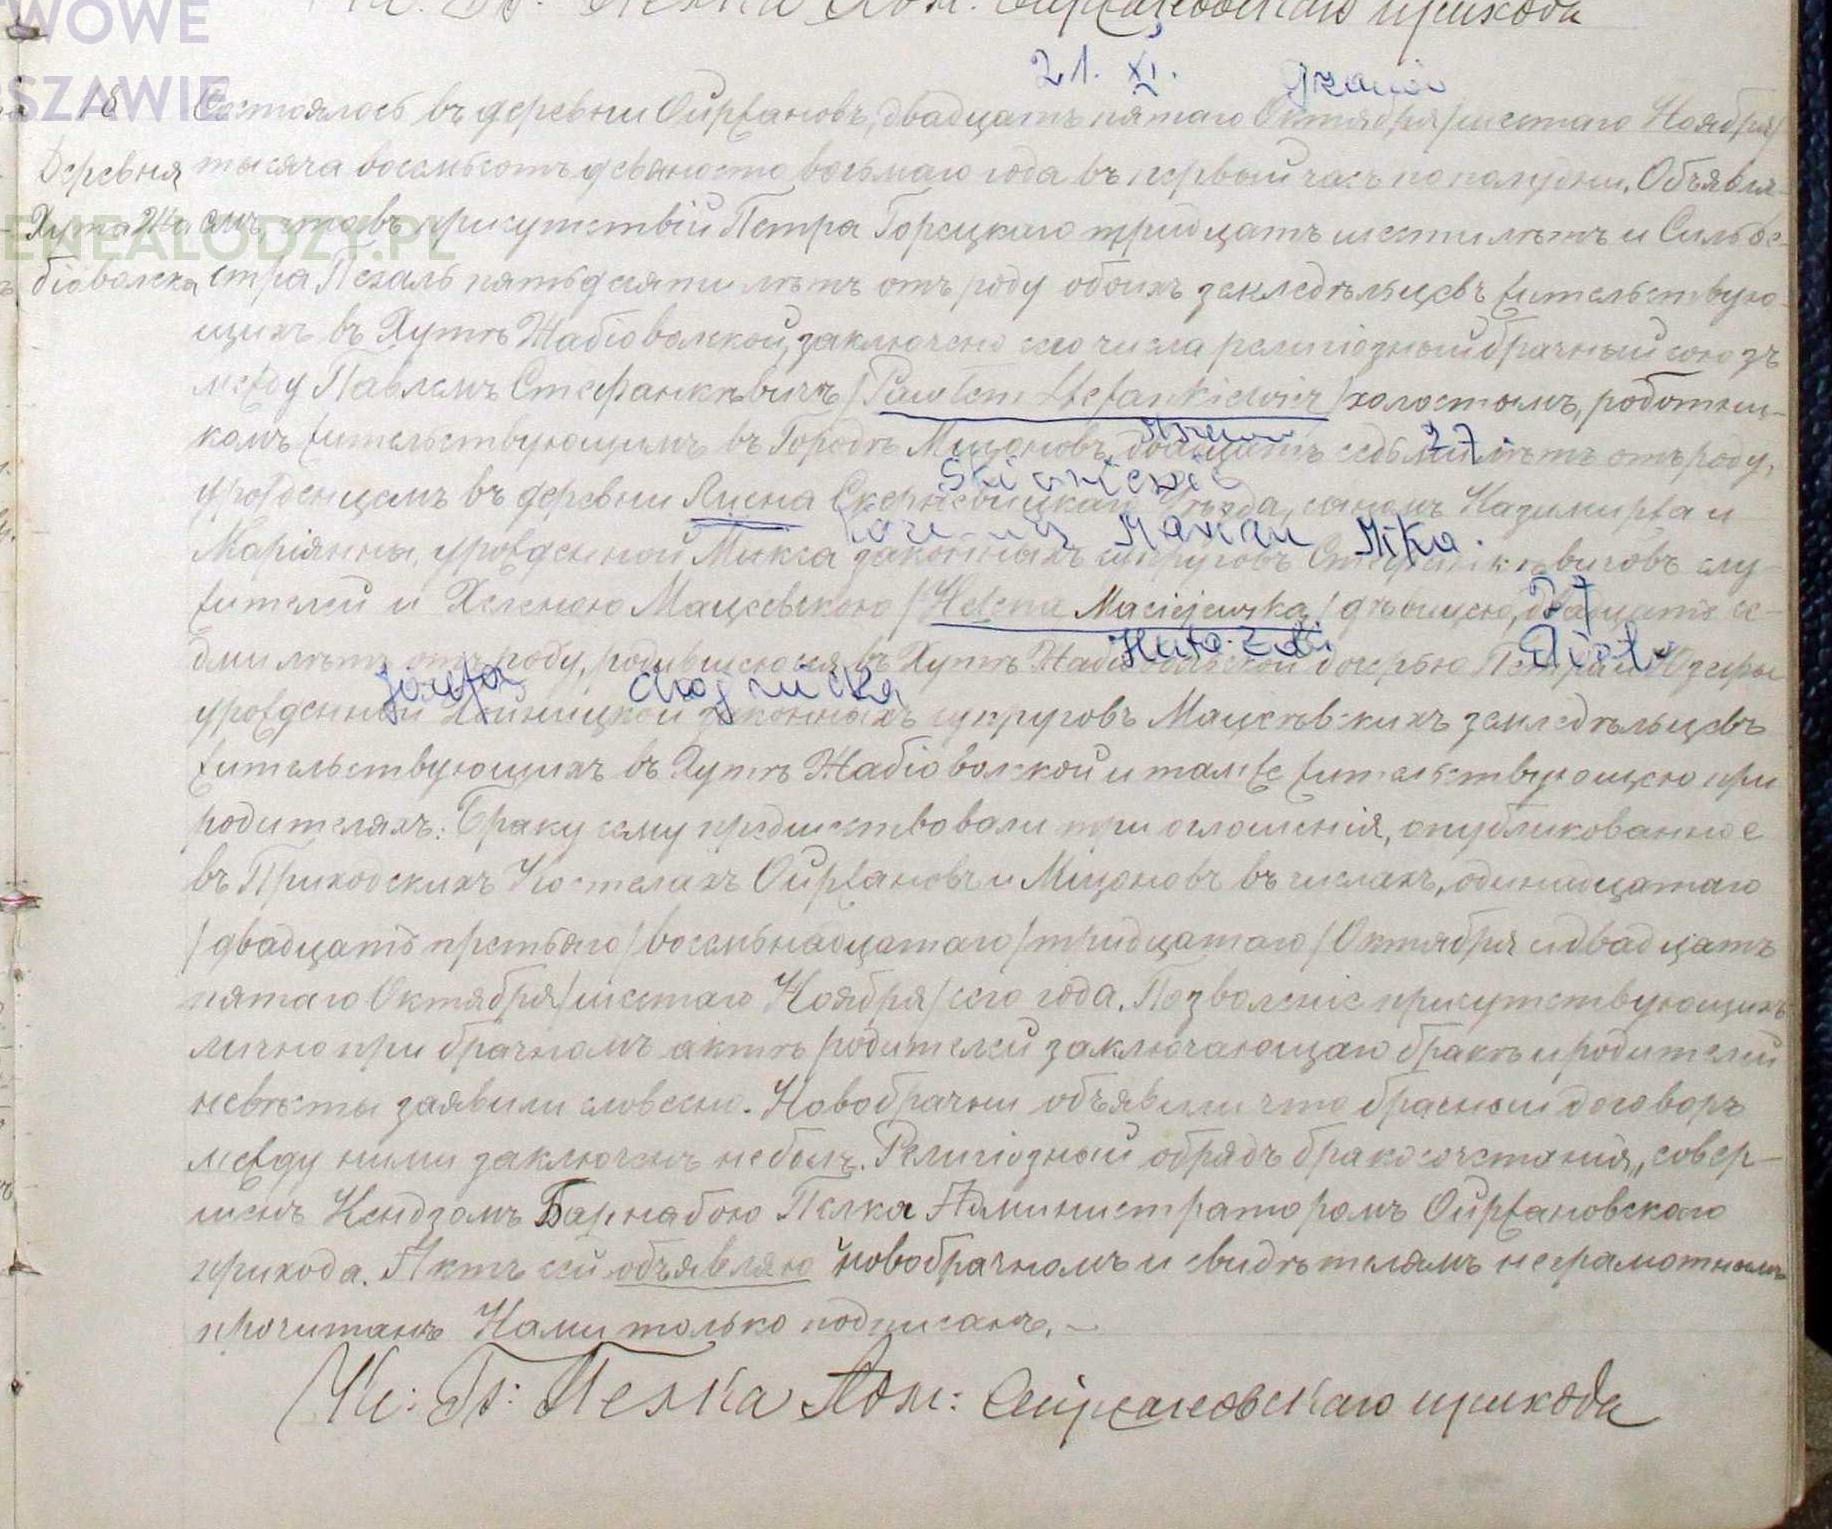 Кс. Б. Пелка Адм. Ойржановскаго прихода
WOWE
SZAWIE
ENEALODZY.PL
21. XI.
18
Состоялось въ деревни Ойржановъ, двадцать пятаго Октября /шестаго Ноября/
Деревня
тысяча восемьсотъ девяносто восьмаго года въ первый часъ по полудни. Объявля-
Хута Жа
емъ, что въ присутствій Петра Горецкаго тридцать шести лѣтъ и Сильве-
біоволска
стра Пехаль пятьдесяти лѣтъ отъ роду обоихъ земледѣльцевъ жительствую-
щихъ въ Хутѣ Жабіоволской, заключено сего числа религіозный брачный союзъ
между Павлемъ Стефанкѣвичъ /Pawłem Stefankiewicz/ холостымъ, работни-
комъ жительствующимъ въ Городѣ Мщоновъ, двадцать седьми лѣтъ отъ роду,
27
Skierniewic
урожденцемъ въ деревни Скерневицкаго Уѣзда, сыномъ Казимиржа и
Marian Mika.
Маріянны, урожденной Микса законныхъ супруговъ Стефанкѣвичовъ слу-
жителей и Хеленою Мацеевскою /Helena Maciejewska/ дѣвицею, двадцать се-
27
Huta Żab
Piotr
дми лѣтъ отъ роду, родившеюся въ Хутѣ Жабіоволской дочерью Петра и Юзефы
Józefa Chojnicka
урожденной Хойницкой законныхъ супруговъ Мацеѣвскихъ земледѣльцевъ
жительствующихъ въ Хутѣ Жабіоволской и тамже жительствующею при
родителяхъ. Браку сему предшествовали три оглошенія, опубликованное
въ Приходскихъ Костелахъ Ойржановъ и Мщоновъ въ числахъ, одинадцатаго
/двадцать претьяго/ восемьнадцатаго /тридцатаго/ Октября и двадцать
пятаго Октября /шестаго Ноября/ сего года. Позволеніе присутствующихъ
лично при брачномъ актѣ родителей заключающаго бракъ и родителей
невѣсты заявили словесно. Новобрачни объявили что брачный договоръ
между ними заключенъ небылъ. Религіозный обрядъ бракосочетанія, совер-
шенъ Ксендзомъ Барнабою Пелка Администраторомъ Ойржановскаго
прихода. Актъ сей объявляю новобрачнымъ и свидѣтелямъ неграмотнымъ
прочитанъ Нами только подписанъ. –
Кс: Б: Пелка Адм: Ойржановскаго прихода